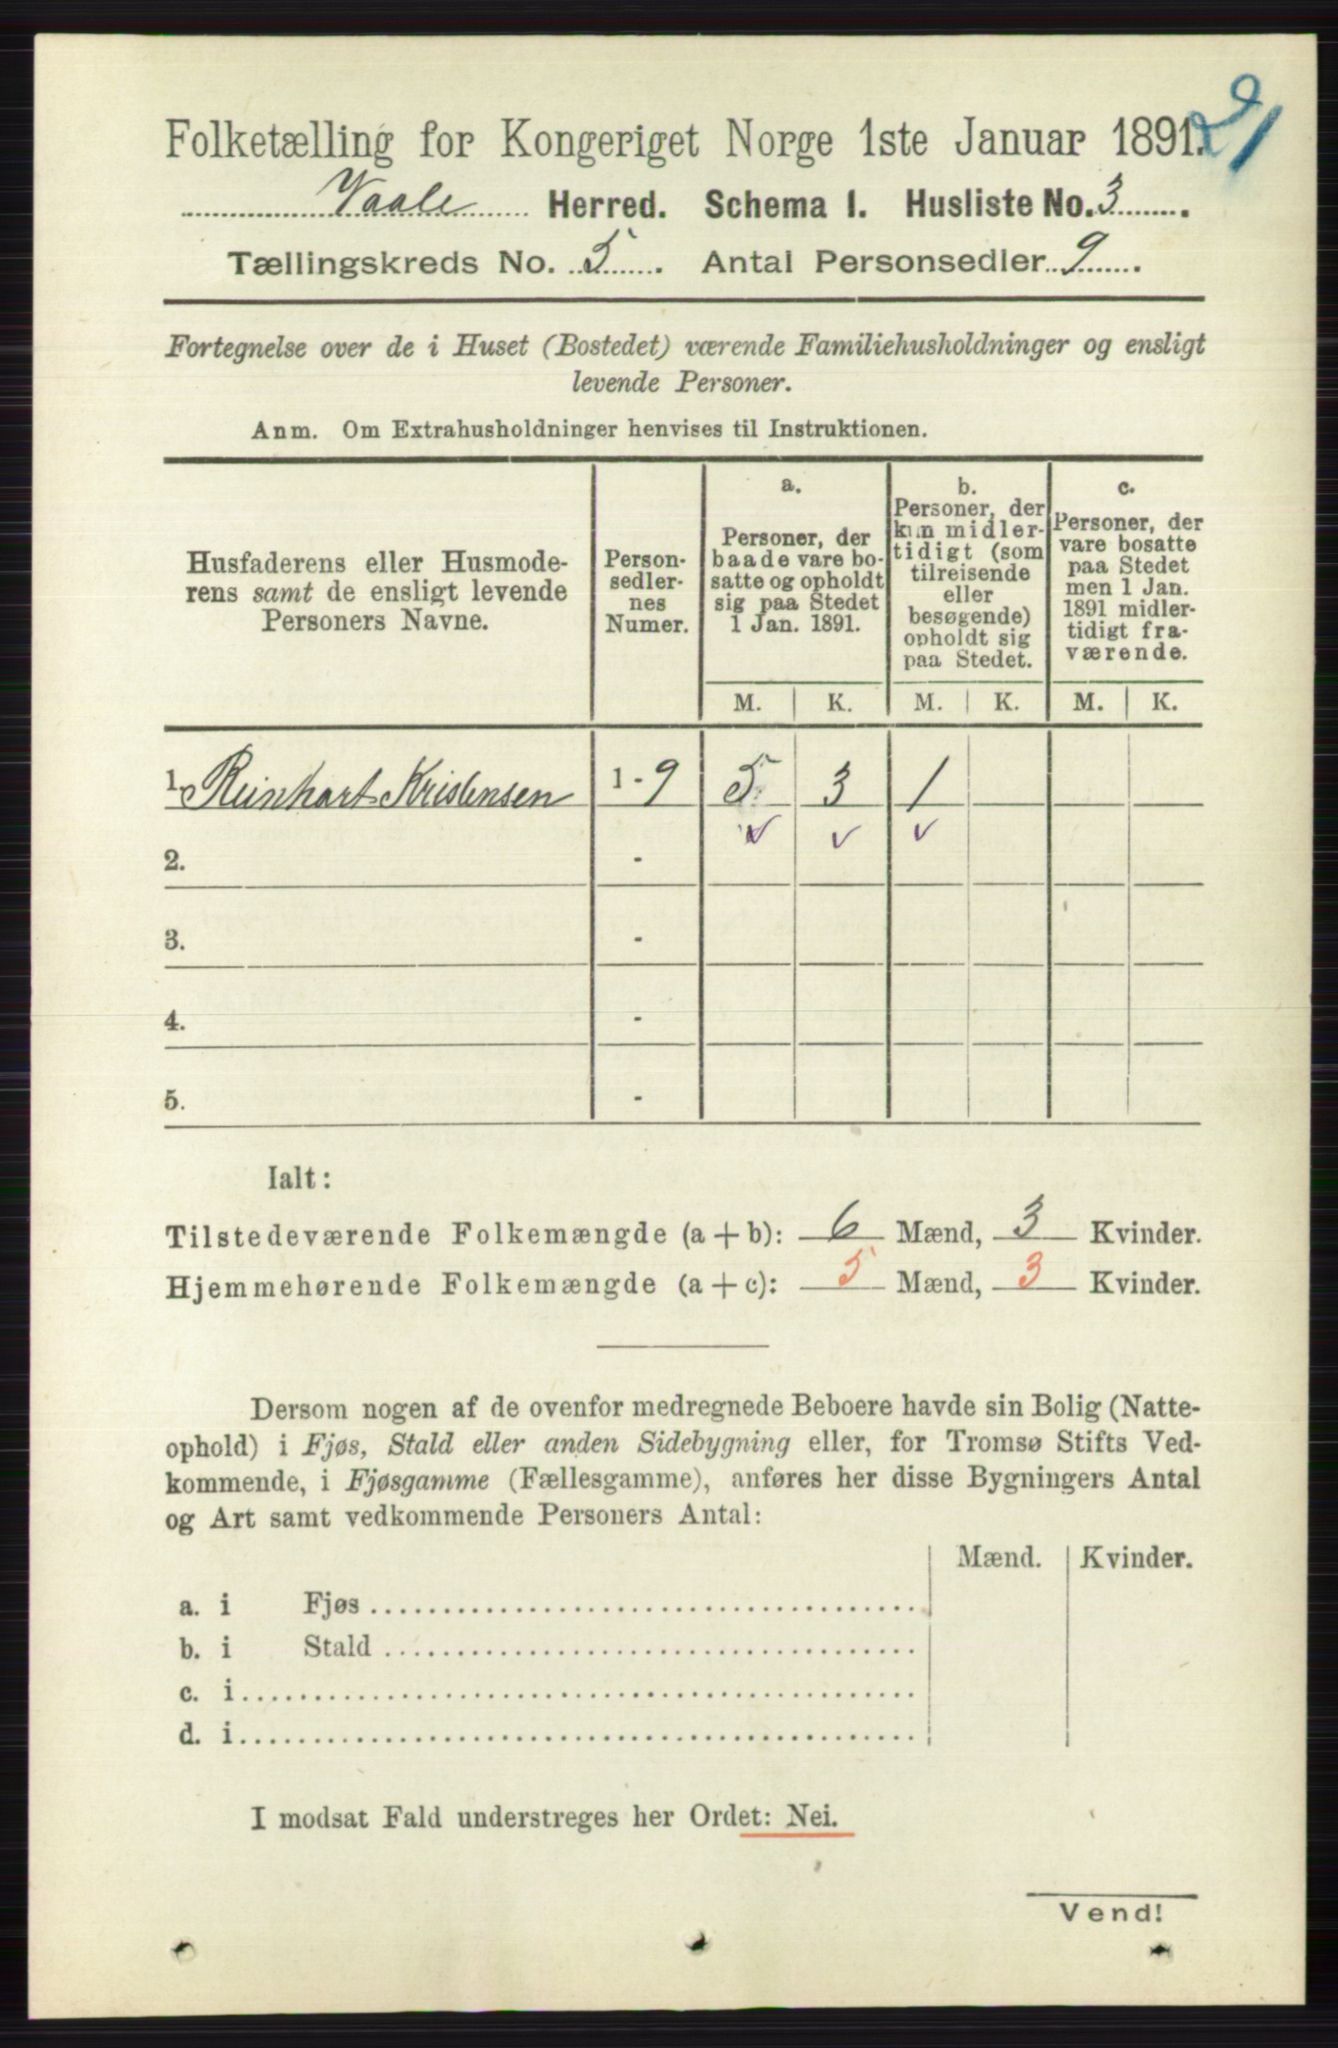 21
Folketælling for Kongeriget Norge 1ste Januar 1891.
Vaale Herred. Schema 1. Husliste No. 3.
Tællingskreds No. 5. Antal Personsedler 9.
Fortegnelse over de i Huset (Bostedet) værende Familiehusholdninger og ensligt
levende Personer.
Anm. Om Extrahusholdninger henvises til Instruktionen.
Husfaderens eller Husmode-
rens samt de ensligt levende
Personers Navne.
Person-
sedler-
nes
Numer.
a.
Personer, der
baade vare bo-
satte og opholdt
sig paa Stedet
1 Jan. 1891.
b.
Personer, der
kun midler-
tidigt (som
tilreisende
eller
besøgende)
opholdt sig
paa Stedet.
c.
Personer, der
vare bosatte
paa Stedet
men 1 Jan.
1891 midler-
tidigt fra-
værende.
M. K. M. K. M. K.
1. Reinhart Kristensen 1 - 9 5 3 1
2. -
3. -
4. -
5. -
Ialt:
Tilstedeværende Folkemængde (a + b): 6 Mænd, 3 Kvinder.
Hjemmehørende Folkemængde (a + c): 5 Mænd, 3 Kvinder.
Dersom nogen af de ovenfor medregnede Beboere havde sin Bolig (Natte-
ophold) i Fjøs, Stald eller anden Sidebygning eller, for Tromsø Stifts Ved-
kommende, i Fjøsgamme (Fællesgamme), anføres her disse Bygningers Antal
og Art samt vedkommende Personers Antal:
Mænd. Kvinder.
a. i Fjøs
b. i Stald
c. i
d. i
I modsat Fald understreges her Ordet: Nei.
Vend!